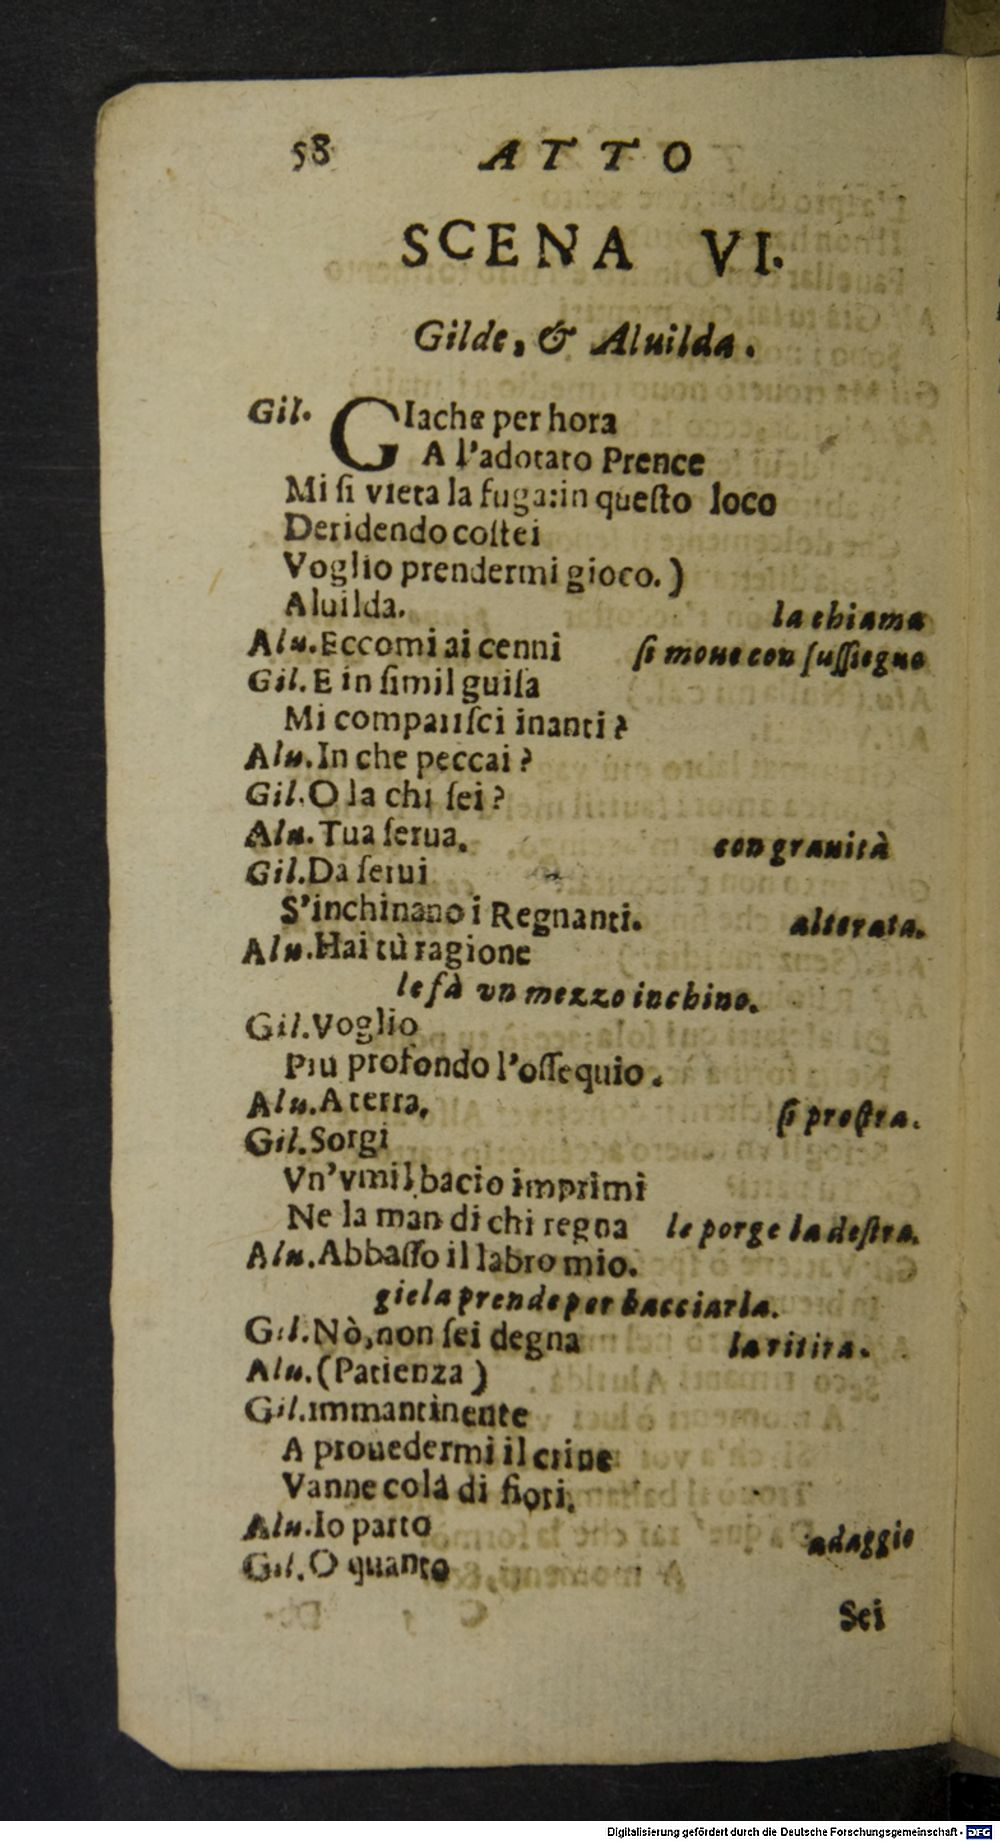 58 ATTO
SCENA VI.
Gilde, & Aluilda.
Gil. GIache per hora
A l'adotato Prence
Mi ſi vieta la fuga:in queſto loco
Deridendo coſtei
Voglio prendermi gioco. )
Aluilda. la chiama
Alu. Eccomi ai cenni ſi moue con ſuſſiegno
Gil. E in ſimil guiſa
Mi compariſci inanti ?
Alu. In che peccai ?
Gil. O la chi ſei ?
Alu. Tua ſerua. con grauità
Gil. Da ſerui
S'inchinano i Regnanti. alterata.
Alu. Hai tù ragione
le fà vn mezzo inchino.
Gil. Voglio
Più profondo l'oſſequio.
Alu. A terra. ſi proſtra.
Gil. Sorgi
Vn'vmil bacio imprimi
Ne la man di chi regna le porge la deſtra.
Alu. Abbaſſo il labro mio.
giela prende per bacciarla.
Gil. Nò,non ſei degna la ritira.
Alu. (Patienza )
Gil. immantinente
A prouedermi il crine
Vanne colà di fiori.
Alu. Io parto adaggio
Gil. O quanto
Sei
Digitalisierung gefördert durch die Deutsche Forschungsgemeinschaft - DFG